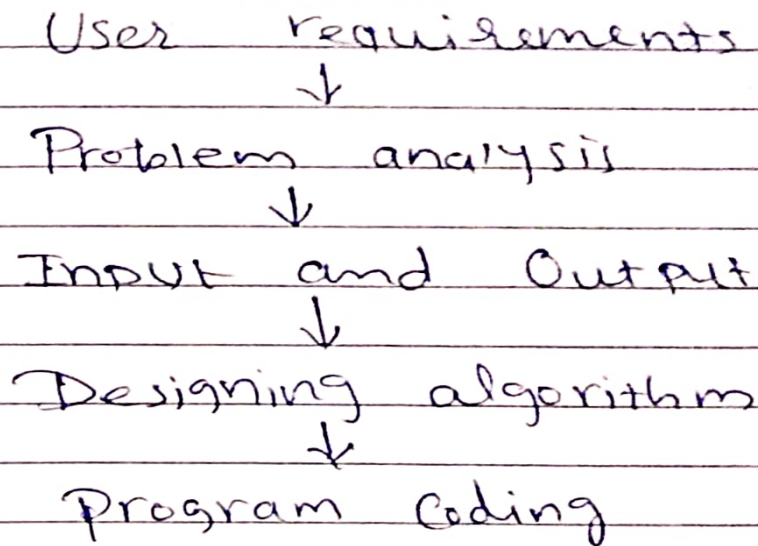 User requirements
↓
Problem analysis
↓
Input and Output
↓
Designing algorithm
↓
Program Coding